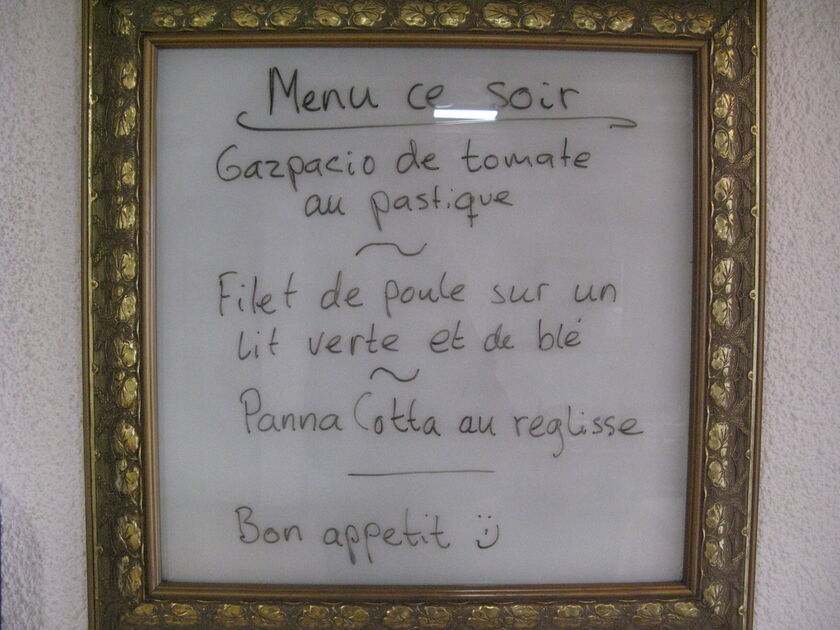 Menu ce soir
Gazpacio de tomate
au pastique
~
Filet de poule sur un
lit verte et de blé
~
Panna Cotta au reglisse
Bon appetit :)